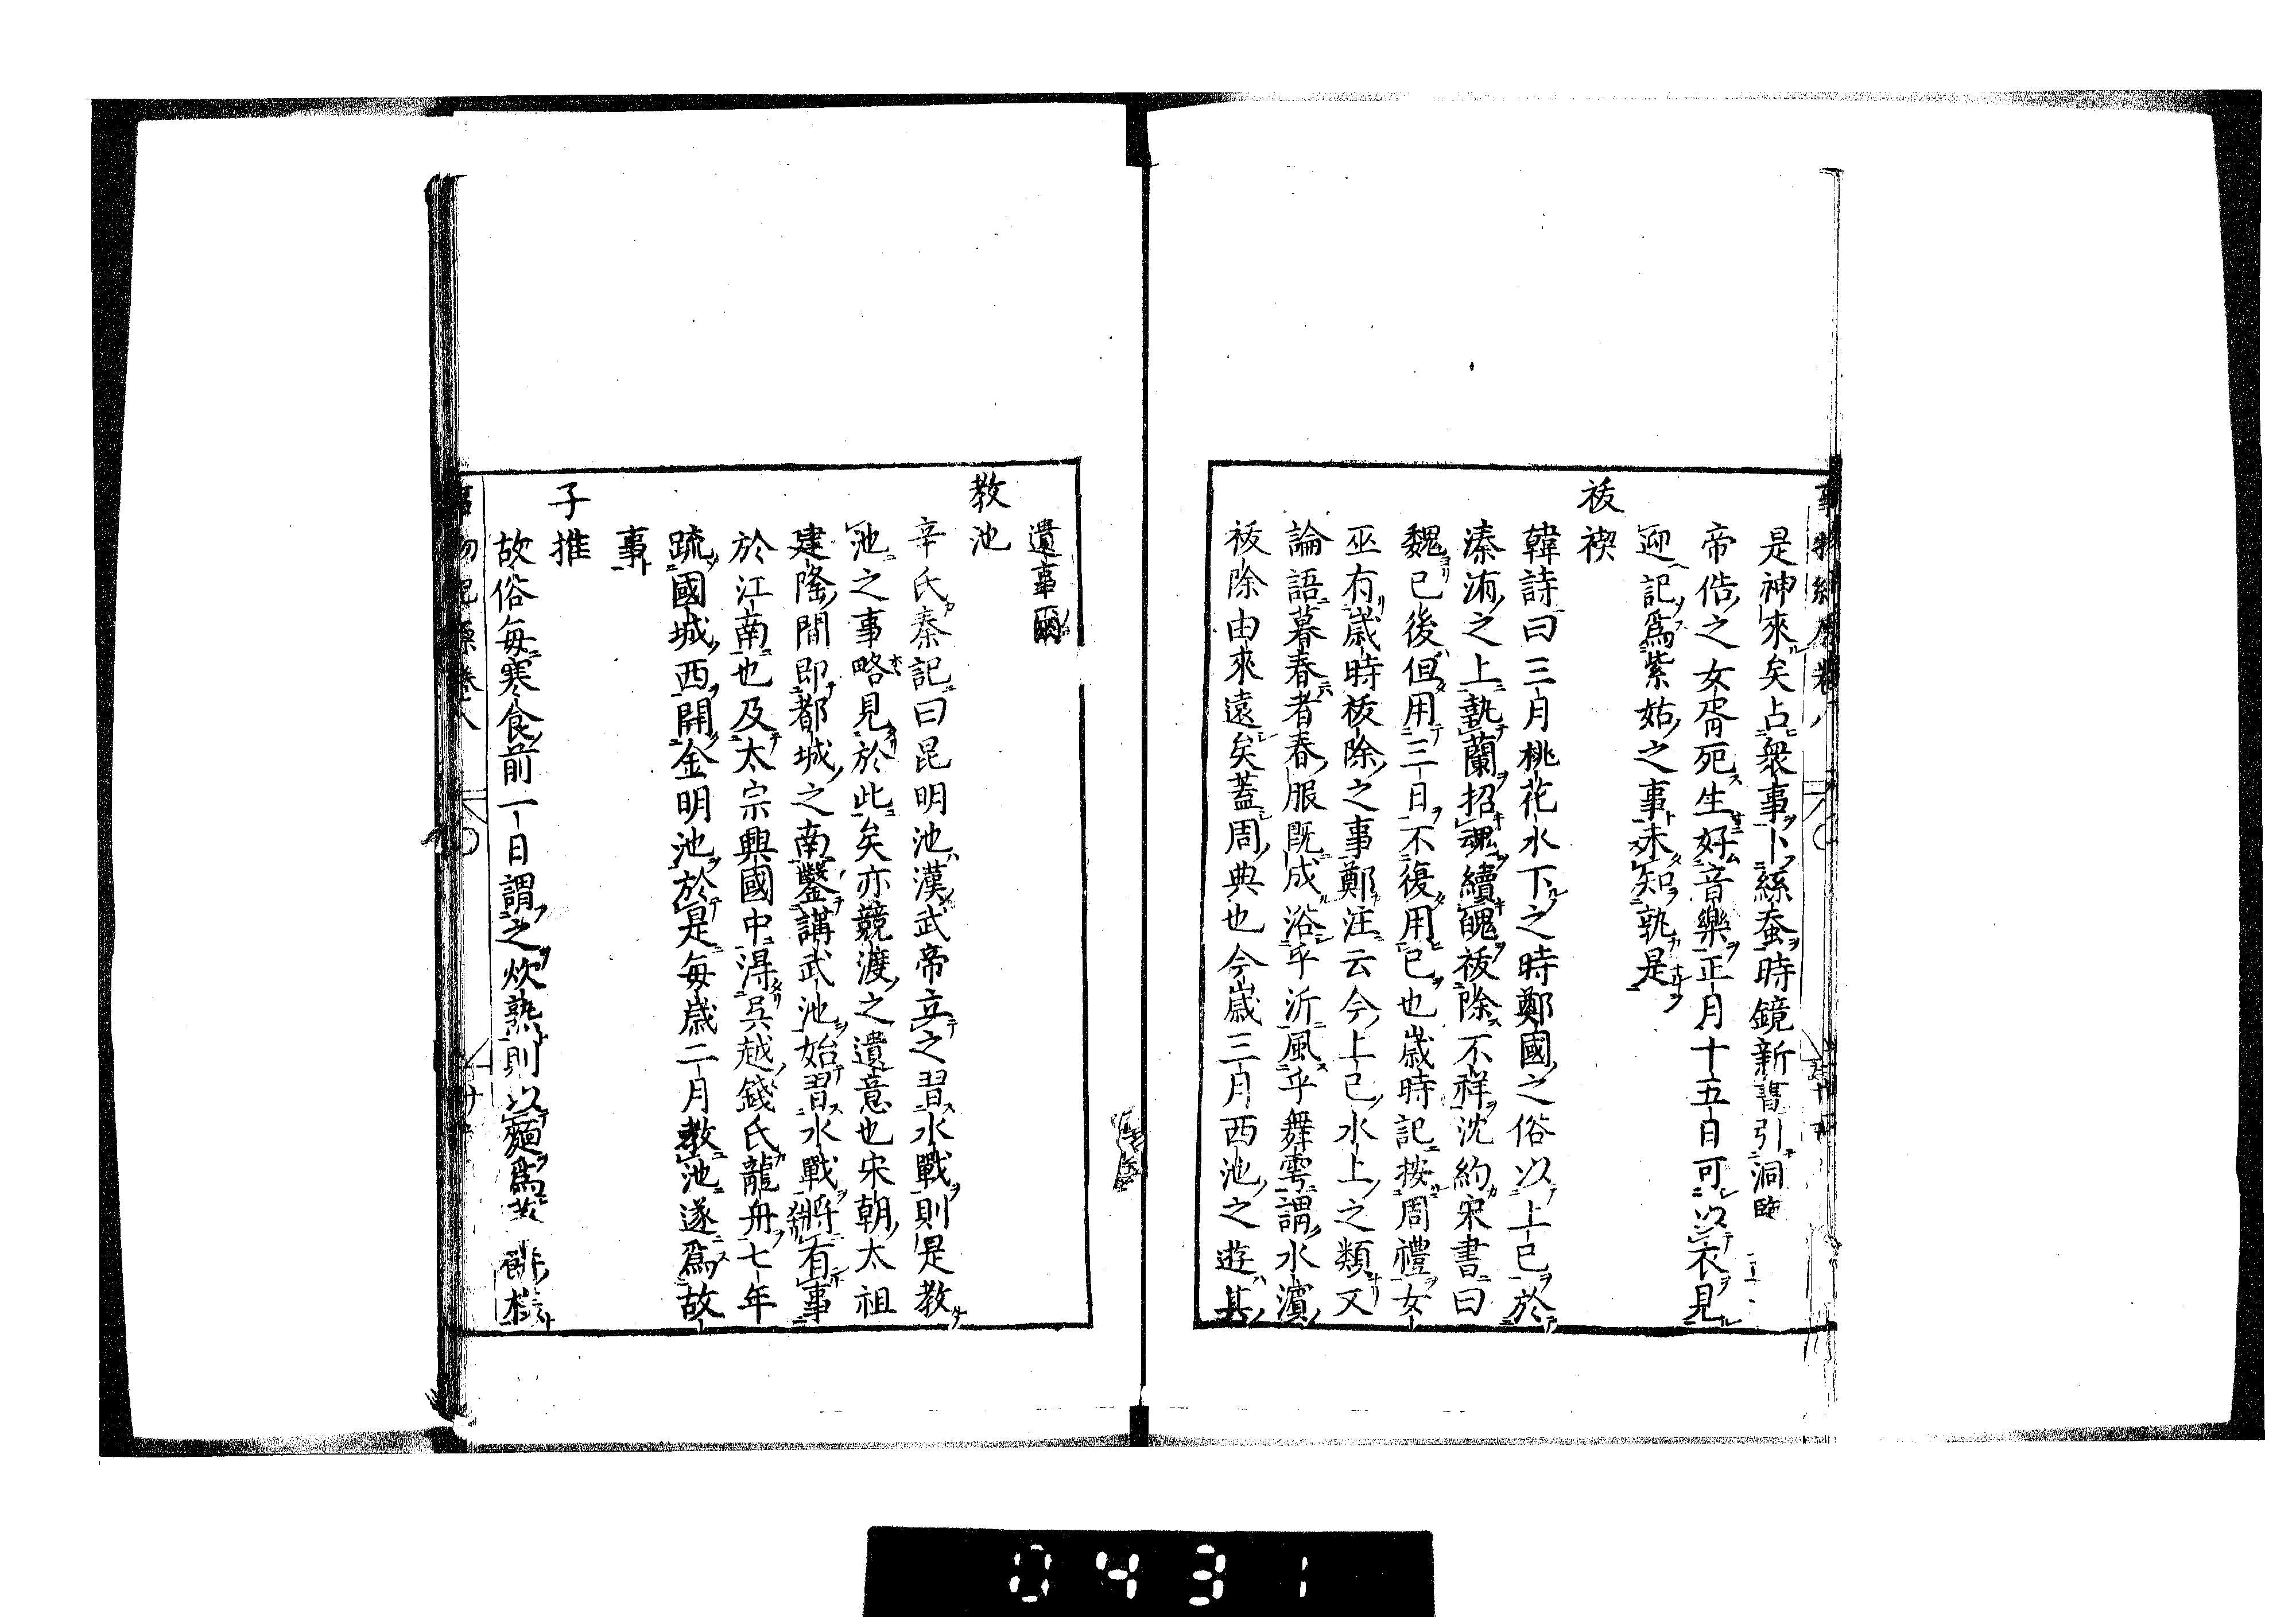 是神來矣占衆事卜絲蚕時鏡新書引洞
帝俈之女胥死生好音樂正月十五日可以衣見
迎記爲紫姑之事未知孰是
祓禊
韓詩曰三月桃花水下之時鄭國之俗以上巳於
溱洧之上執蘭招魂續魄祓除不祥沈約宋書曰
魏已後但用三日不復用巳也歲時記按周禮女
巫有歲時祓除之事鄭注云今上巳水上之類又
論語暮春者春服既成浴乎沂風乎舞雩謂水濱
祓除由來遠矣蓋周典也今歲三月西池之遊其
遺事爾
教池
辛氏秦記曰昆明池漢武帝立之習水戰則是教
池之事略見於此矣亦競渡之遺意也宋朝太祖
建隆間即都城之南鑿講武池始習水戰將有事
於江南也及太宗興國中得吳越錢氏龍舟七年
疏國城西開金明池於是每歲二月教池遂爲故
事
子推
故俗每寒食前一日謂之炊熟則以麵爲
事物紀原卷八
0431